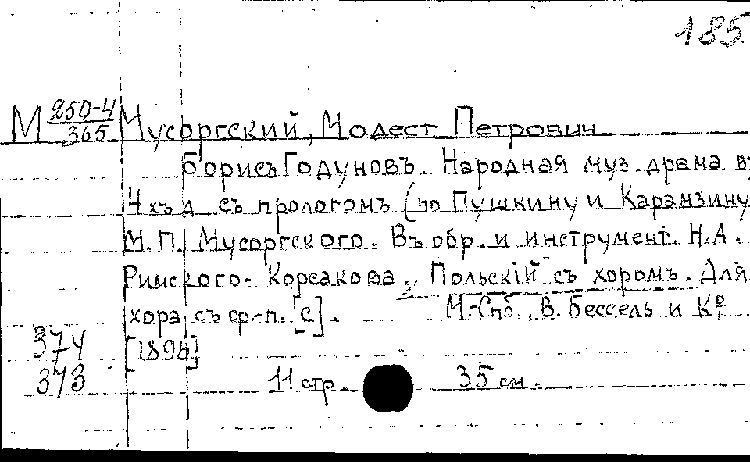 185
М 250-4/365 Мусоргский, Модест Петрович
Борисъ Годуновъ. Народная муз. драма въ
4хъ д. съ прологомъ (по Пушкину и Карамзину
М.П. Мусоргского. Въ обр. и инструмент. Н.А.
Римского-Корсакова. Польскій съ хоромъ. Для
хора съ ф.-п. [с]. М.-Спб. В. Бессель и Кº
374 [1896]
373 11 стр. 35 см.